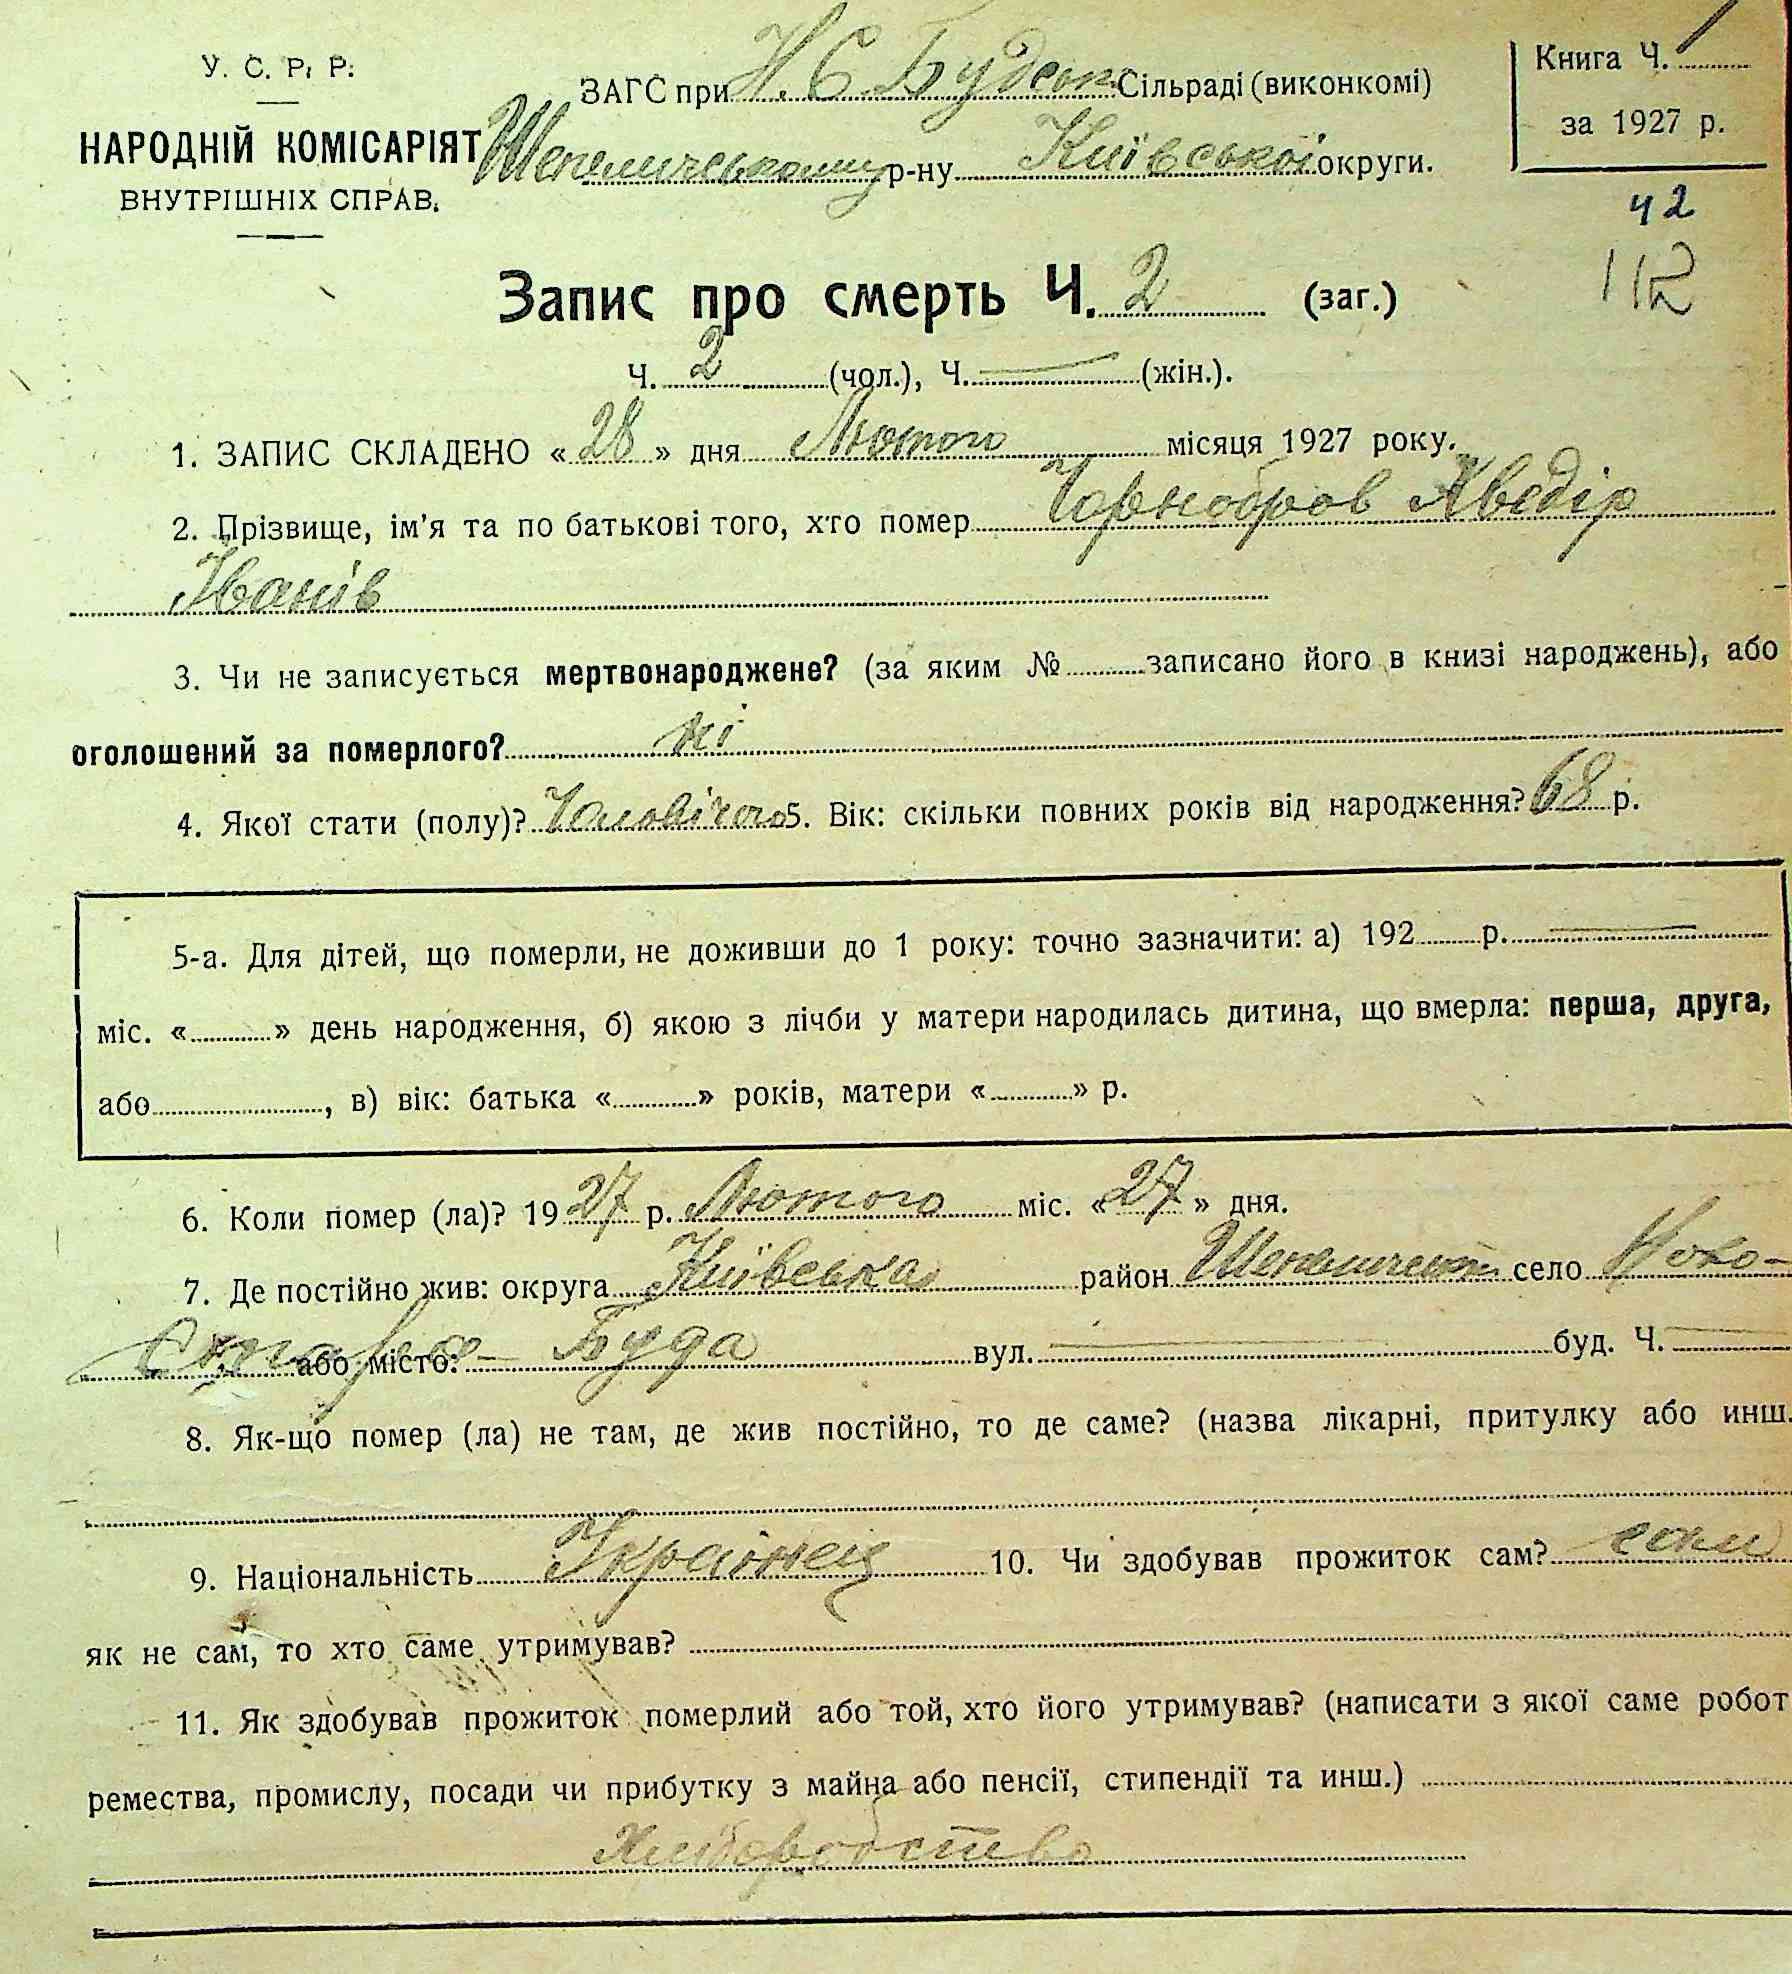 У. С. Р. Р.
НАРОДНІЙ КОМІСАРІЯТ
ВНУТРІШНІХ СПРАВ.
ЗАГС при Н. С. Будськ. Сільраді (виконкомі)
Шепелическому р-ну Київської округи.
Книга Ч. 1
за 1927 р.
42
112
Запис про смерть Ч. 2 (заг.)
Ч. 2 (чол.), Ч. — (жін.).
1. ЗАПИС СКЛАДЕНО «28» дня Лютого місяця 1927 року.
2. Прізвище, ім'я та по батькові того, хто помер Чорнобров Авєдір
Іванів
3. Чи не записується мертвонароджене? (за яким № записано його в книзі народжень), або
оголошений за померлого? ні
4. Якої стати (полу)? Чоловічого 5. Вік: скільки повних років від народження? 68 р.
5-а. Для дітей, що померли, не доживши до 1 року: точно зазначити: а) 192 р. —
міс. « » день народження, б) якою з лічби у матери народилась дитина, що вмерла: перша, друга,
або , в) вік: батька « » років, матери « » р.
6. Коли помер (ла)? 1927 р. Лютого міс. «27» дня.
7. Де постійно жив: округа Київська район село Ново-
або місто: Буда вул. — буд. Ч. —
8. Як-що помер (ла) не там, де жив постійно, то де саме? (назва лікарні, притулку або инш.
9. Національність Українец 10. Чи здобував прожиток сам?
як не сам, то хто саме утримував?
11. Як здобував прожиток померлий або той, хто його утримував? (написати з якої саме робот
ремества, промислу, посади чи прибутку з майна або пенсії, стипендії та инш.)
Хліборобство